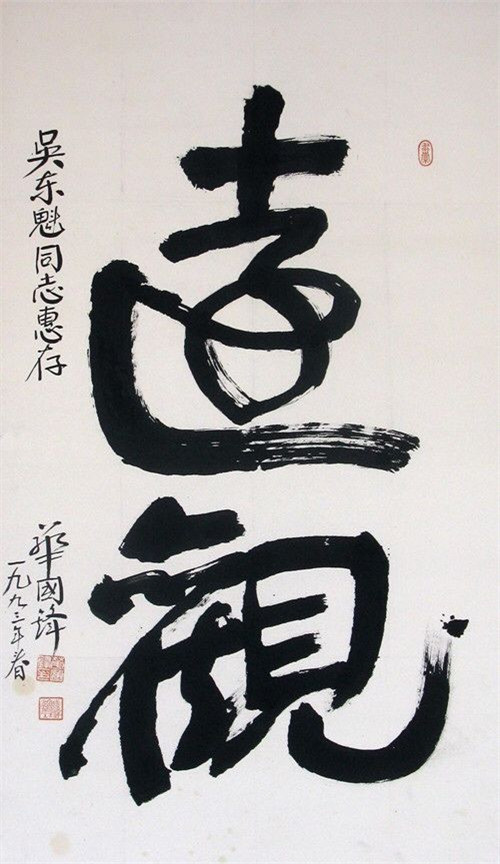 遠
觀
吳东魁同志惠存
華國鋒
一九九三年春